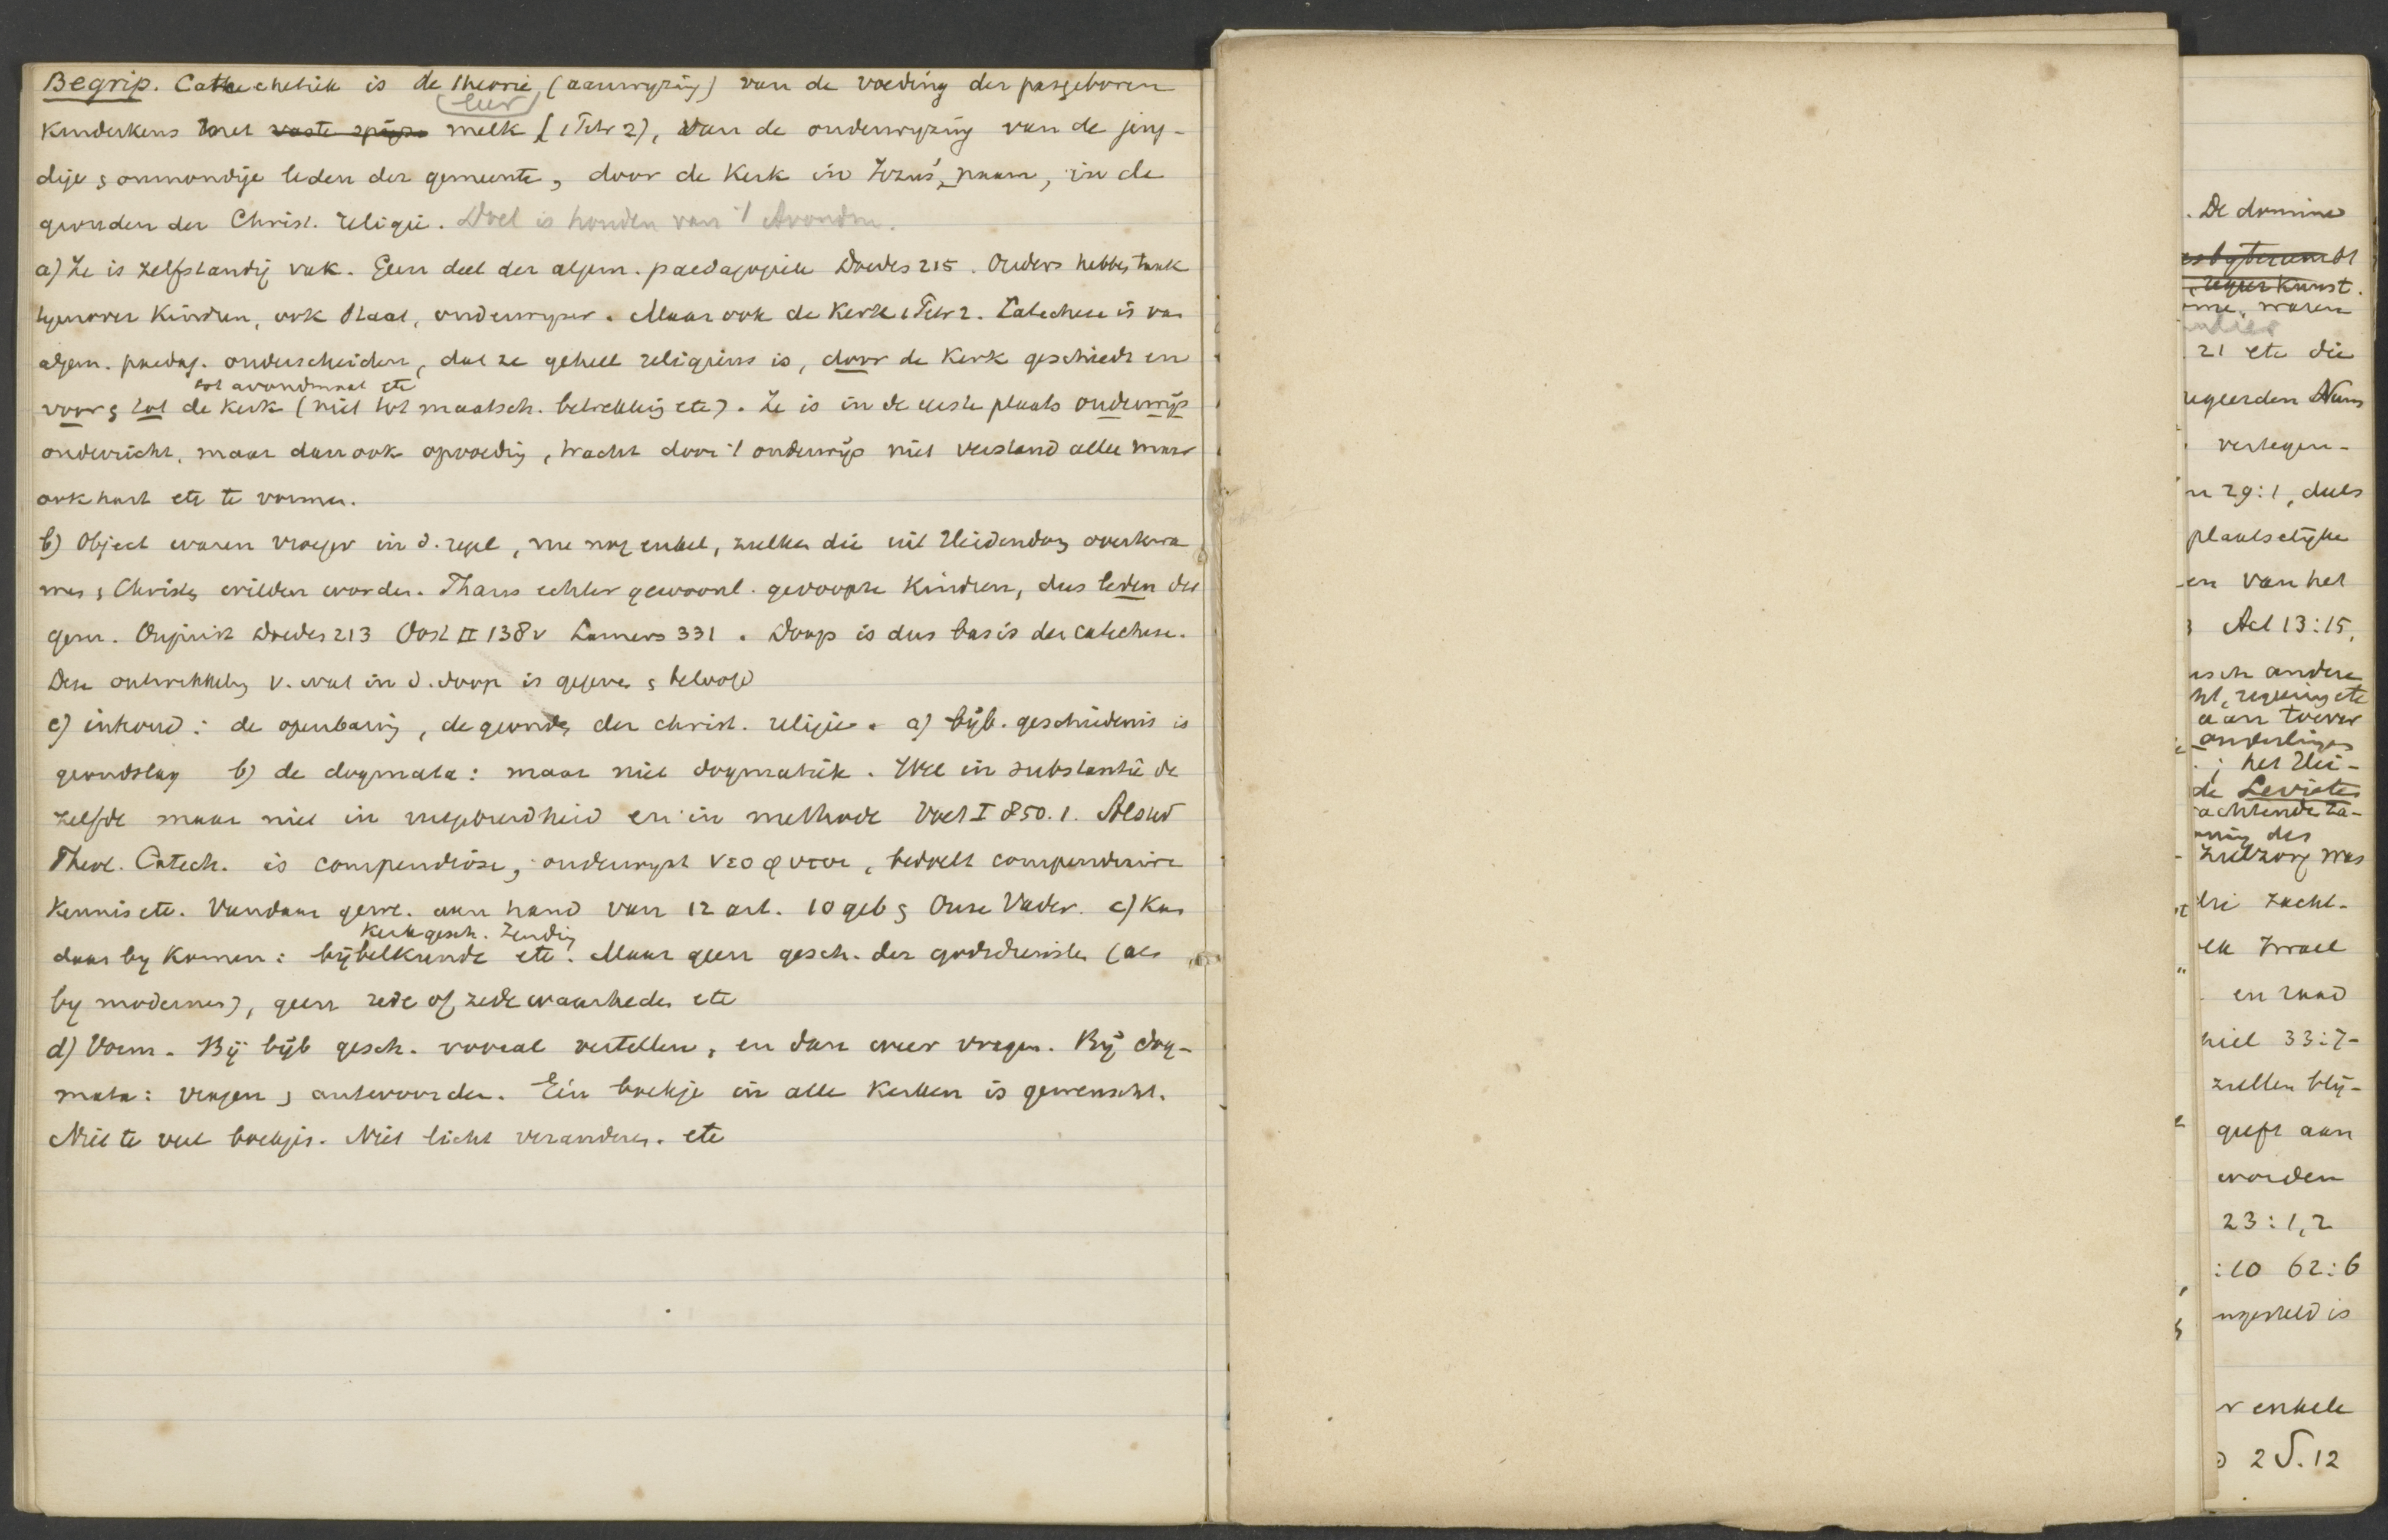 Begrip. Catechetiek is de theorie (aanwyzing) van de voeding der pasgeboren
(leer)
kinderkens met vaste spijze melk (1 Petr 2), van de onderwyzing van de jeug-
dige & onmondige leden der gemeente, door de Kerk in Jezus' naam, in de
gronden der Christ. religie. Doel is houden van 't Avondm.
a) Ze is zelfstandig vak. Geen deel der algem. paedagogiek Doedes 215. Ouders hebben taak
tegenover Kinderen, ook Staat, onderwyzer. Maar ook de Kerk 1 Petr 2. Catechese is van
algem. paedag. onderscheiden, dat ze geheel religieus is, door de Kerk geschiedt en
tot avondmaal etc
voor & tot de Kerk (niet tot maatsch. betrekking etc). Ze is in de eerste plaats onderwijs
onderricht, maar dan ook opvoeding, tracht door 't onderwijs niet verstand alleen maar
ook hart etc te vormen.
b) Object waren vroeger in d. regel, nu nog enkel, zulken die uit Heidendom overkwa
men & Christen wilden worden. Thans echter gewoonl. gedoopte Kinderen, dus leden der
gem. Doedes 213 Oost II 138v Lamers 331. Doop is dus basis der catechese.
Deze ontwikkeling v. wat in d. doop is gegeven & beloofd
c) inhoud: de openbaring, de gronden der christ. religie. a) bijb. geschiedenis is
grondslag b) de dogmata: maar niet dogmatiek. Wel in substantie de
zelfde maar niet in uitgebreidheid en in methode Voet I 850.1. Alsted
Theol. Catech. is compendiose, onderwyst νεοφυτοι, bedoelt compendieuse
Kennis etc. Vandaar gew. aan hand van 12 art. 10 geb & Onze Vader. c) Kan
Kerkgesch. Zending
daar by Komen: bijbelkunde etc. Maar geen gesch. der godsdiensten (als
by modernen), geen rede of zede waarheden etc
d) Vorm. Bij bijb gesch. vooral vertellen, en dan weer vragen. Bij dog-
mata: vragen & antwoorden. Eén boekje in alle Kerken is gewenscht.
Niet te veel boekjes. Niet licht veranderen. etc
. De domine
regeerkunst.
me, waren
21 etc die
regeerden Num
vertegen-
n 29:1, deels
plaatselijke
en van het
Act 13:15,
isch andere
ht, regering etc
aan toever
anderlingen
; het Hei-
de Levieten
achtende ta-
ning des
zielzorg was
dri zacht-
ek Israel
en raad
hiel 33:7-
zullen blij-
geeft aan
worden
23:1,2
:10 62:6
ngesteld is
r enkele
2 S. 12